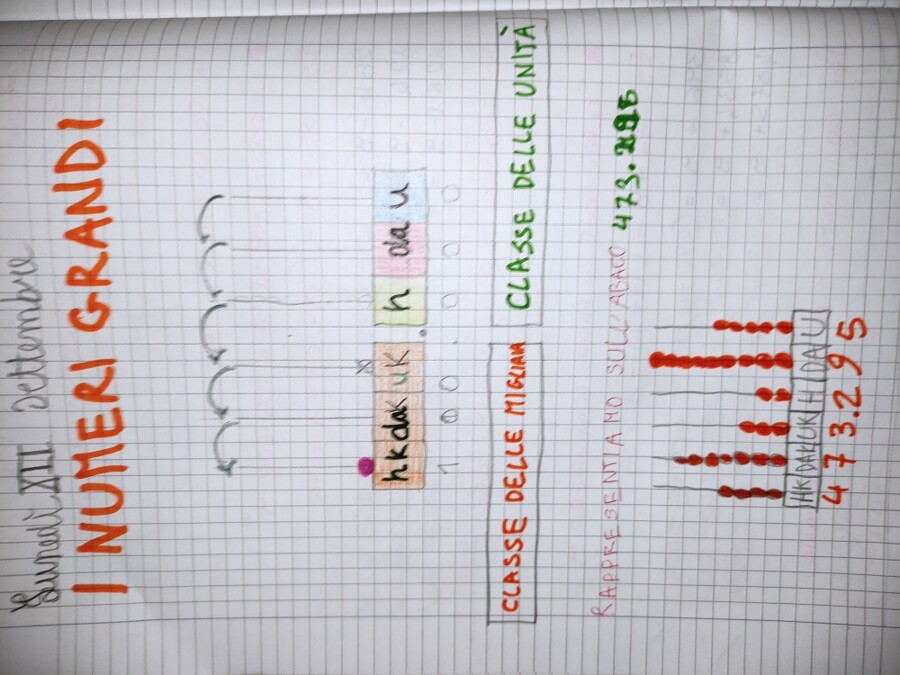 Lunedì XIII Settembre
I NUMERI GRANDI
hk dak uk . h da u
1 0 0 0 0 0
CLASSE DELLE MIGLIAIA CLASSE DELLE UNITÀ
RAPPRESENTIAMO SULL'ABACO 473.295
HK DAK UK H DA U
4 7 3.2 9 5